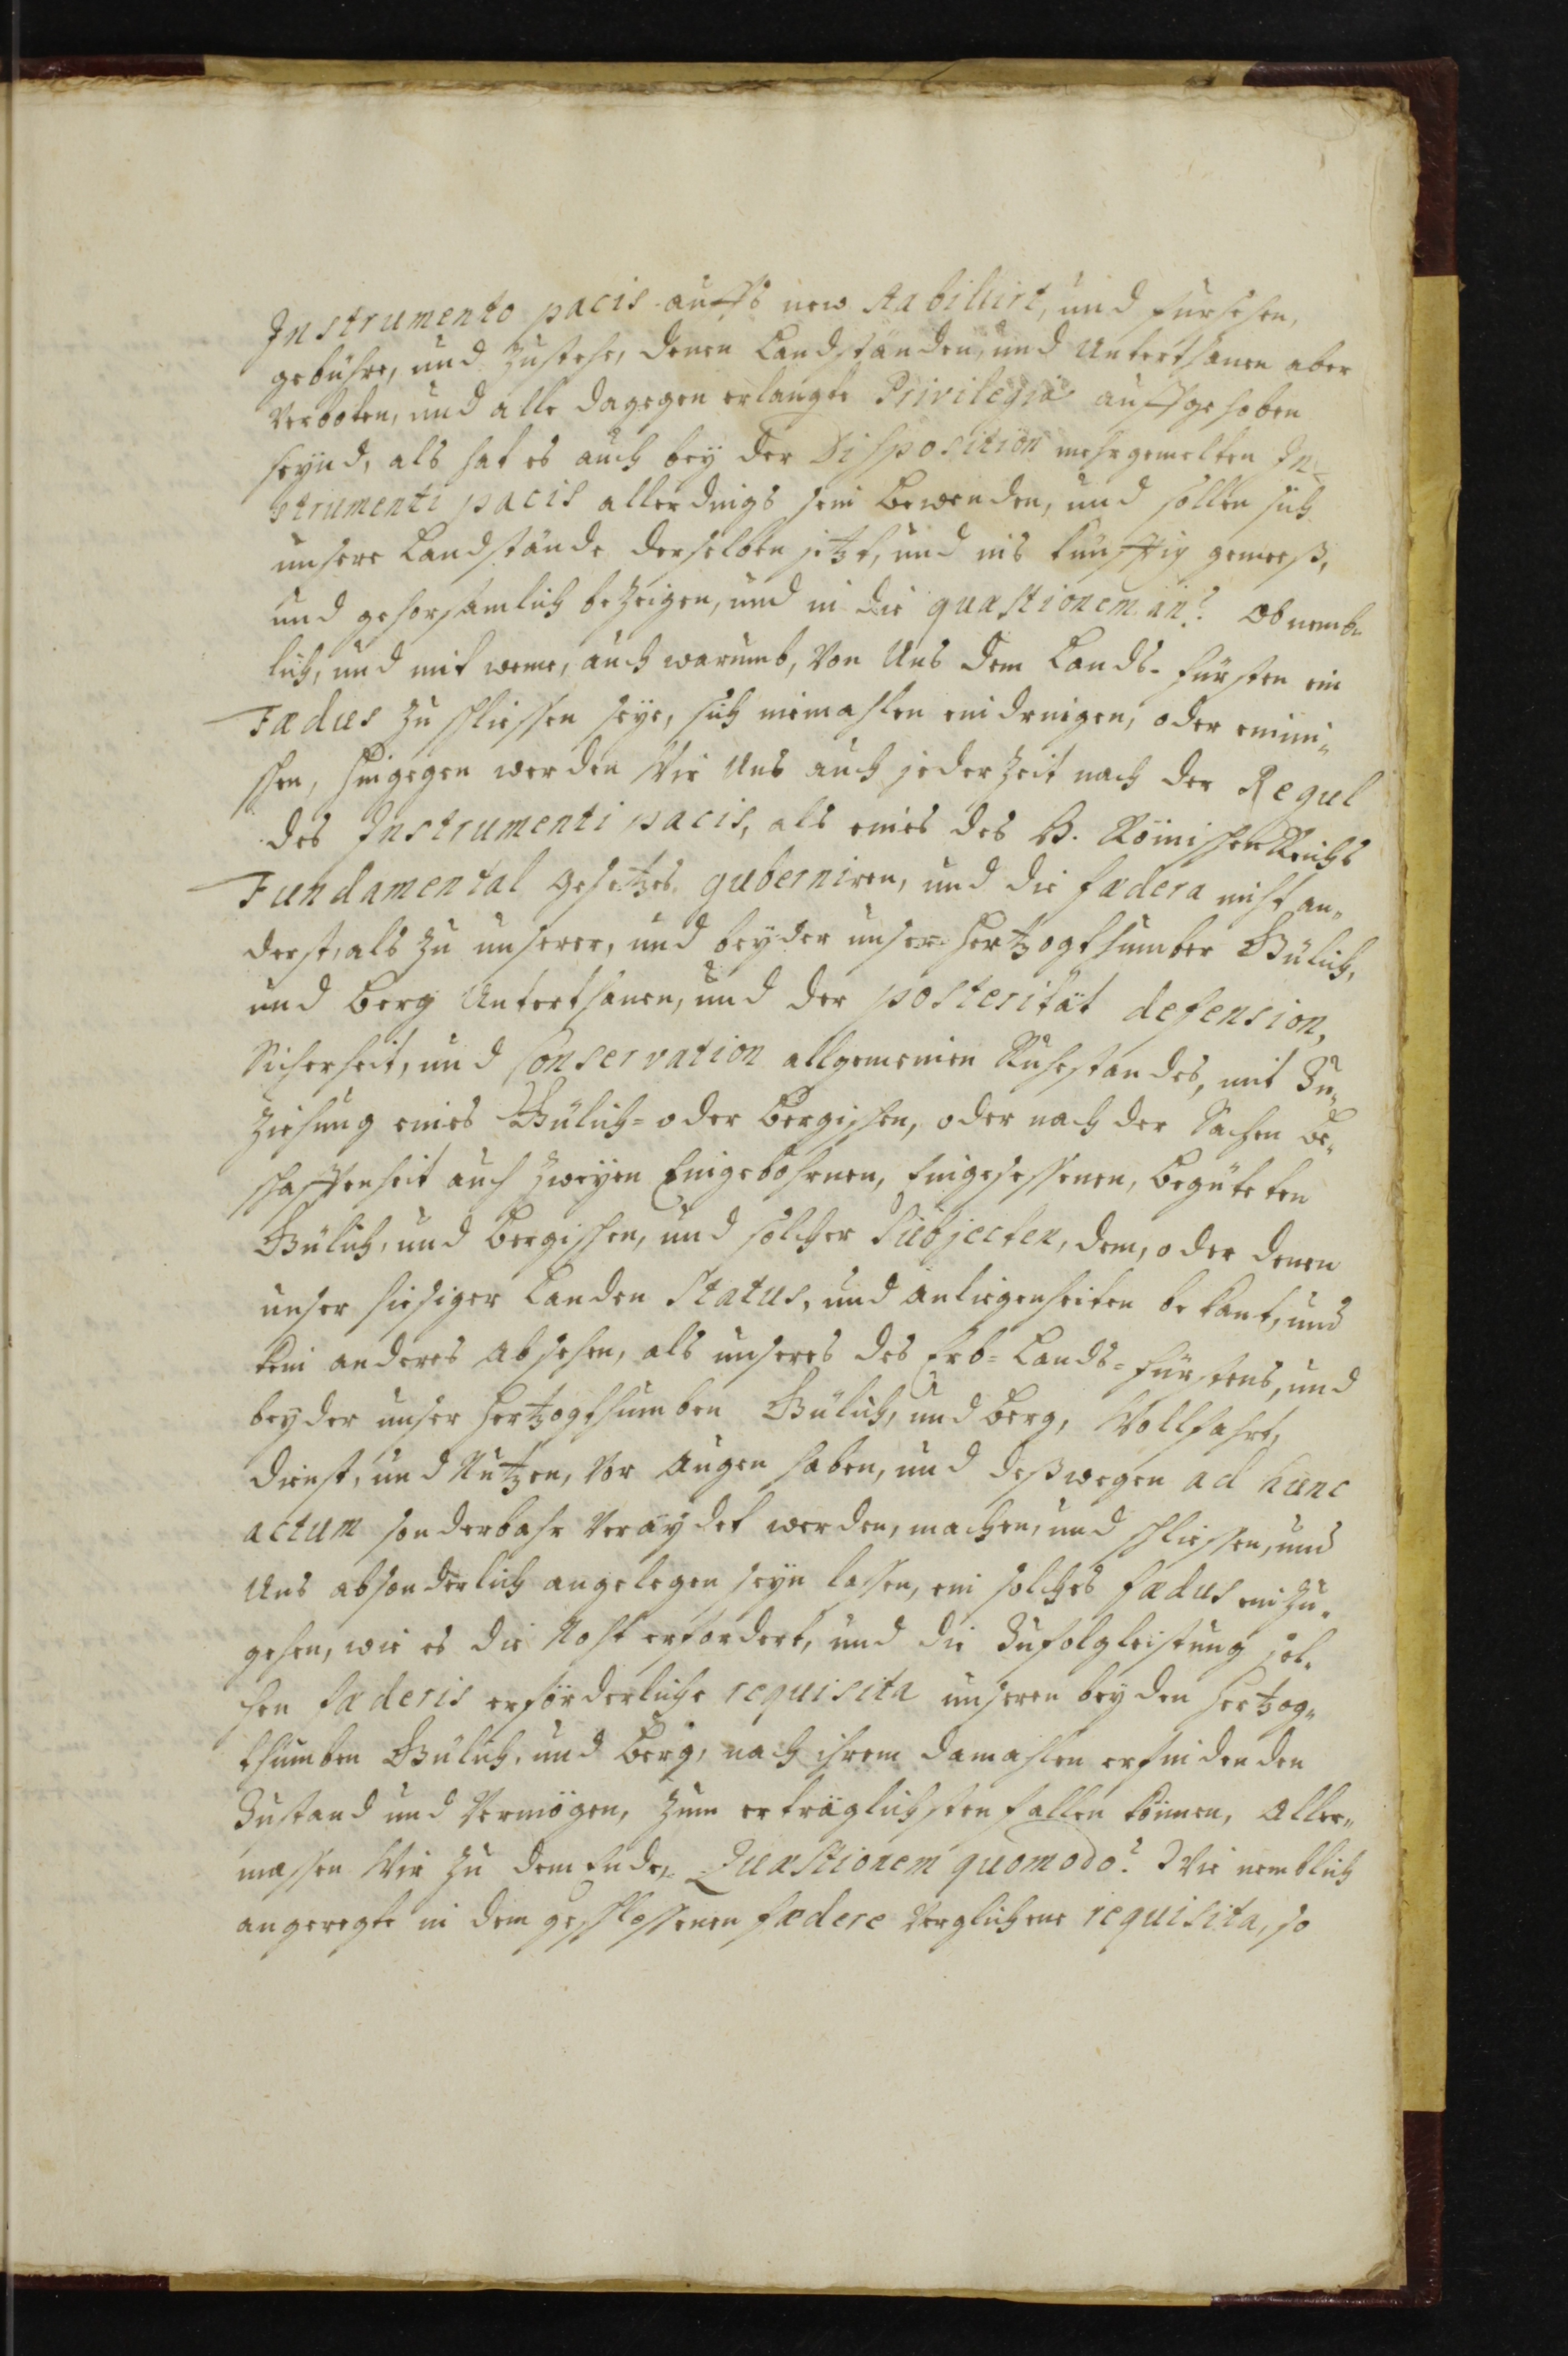 Instrumento pacis auffs new stabilirt, und fursehen,
gebühre, und zustehe, denen Landständen, und Unterthanen aber
verboten, und alle dagegen erlangte Privilegia auffgehoben
seynd, als hat es auch bey der Disposition mehrgemelten In-
strumenti pacis allerdings sein bewenden, und sollen sich
unsere Landstände derselben jetzt, und ins künfftig gemeeß,
und gehorsamlich bezeigen, und in die quæstionem an? Ob nemb-
lich, und mit weme, auch warumb, von Uns dem Lands-fürsten ein
Fædus zu schliessen seye, sich niemahlen eindringen, oder einmi-
schen, hingegen werden Wir Uns auch jederzeit nach der Regul
des Instrumenti pacis, als eines des H. Römischen Reichs
Fundamental gesetzes guberniren, und die fædera nicht an-
derst, als zu unserer, und beyder unser Hertzogthumber Gülich,
und Berg Unterthanen, und der posterität defension,
Sicherheit, und Conservation allgemeinen Ruhestandes, mit Zu-
ziehung eines Gülich- oder Bergischen, oder nach der Sachen be-
schaffenheit auch zweyen Eingebohrnen, Eingesessenen, begüteten
Gülich, und Bergischen, und solcher Subjecten, dem, oder denen
unser hiesiger Landen Status, und anliegenheiten bekant, und
kein anderes absehen, als unseres des Erb-Lands-fürstens, und
beyder unser Hertzogthumben Gülich, und Berg, Wollfahrt,
dienst, und Nutzen, vor augen haben, und deßwegen ad hunc
actum sonderbahr veraydet werden, machen, und schliessen, und
Uns absonderlich angelegen seyn lassen, ein solches fædus einzu-
gehen, wie es die Noht erfordert, und die Zufolgleistung sol-
chen fæderis erförderliche requisita unseren beyden Hertzog-
thumben Gülich, und Berg, nach ihrem damahlen erfindenden
Zustand und Vermögen, zum erträglichsten fallen können, Aller-
massen Wir zu dem Ende, Quæstionem quomodo? Wie nemblich
angeregte in dem geschlossenen fædere verglichene requisita, so